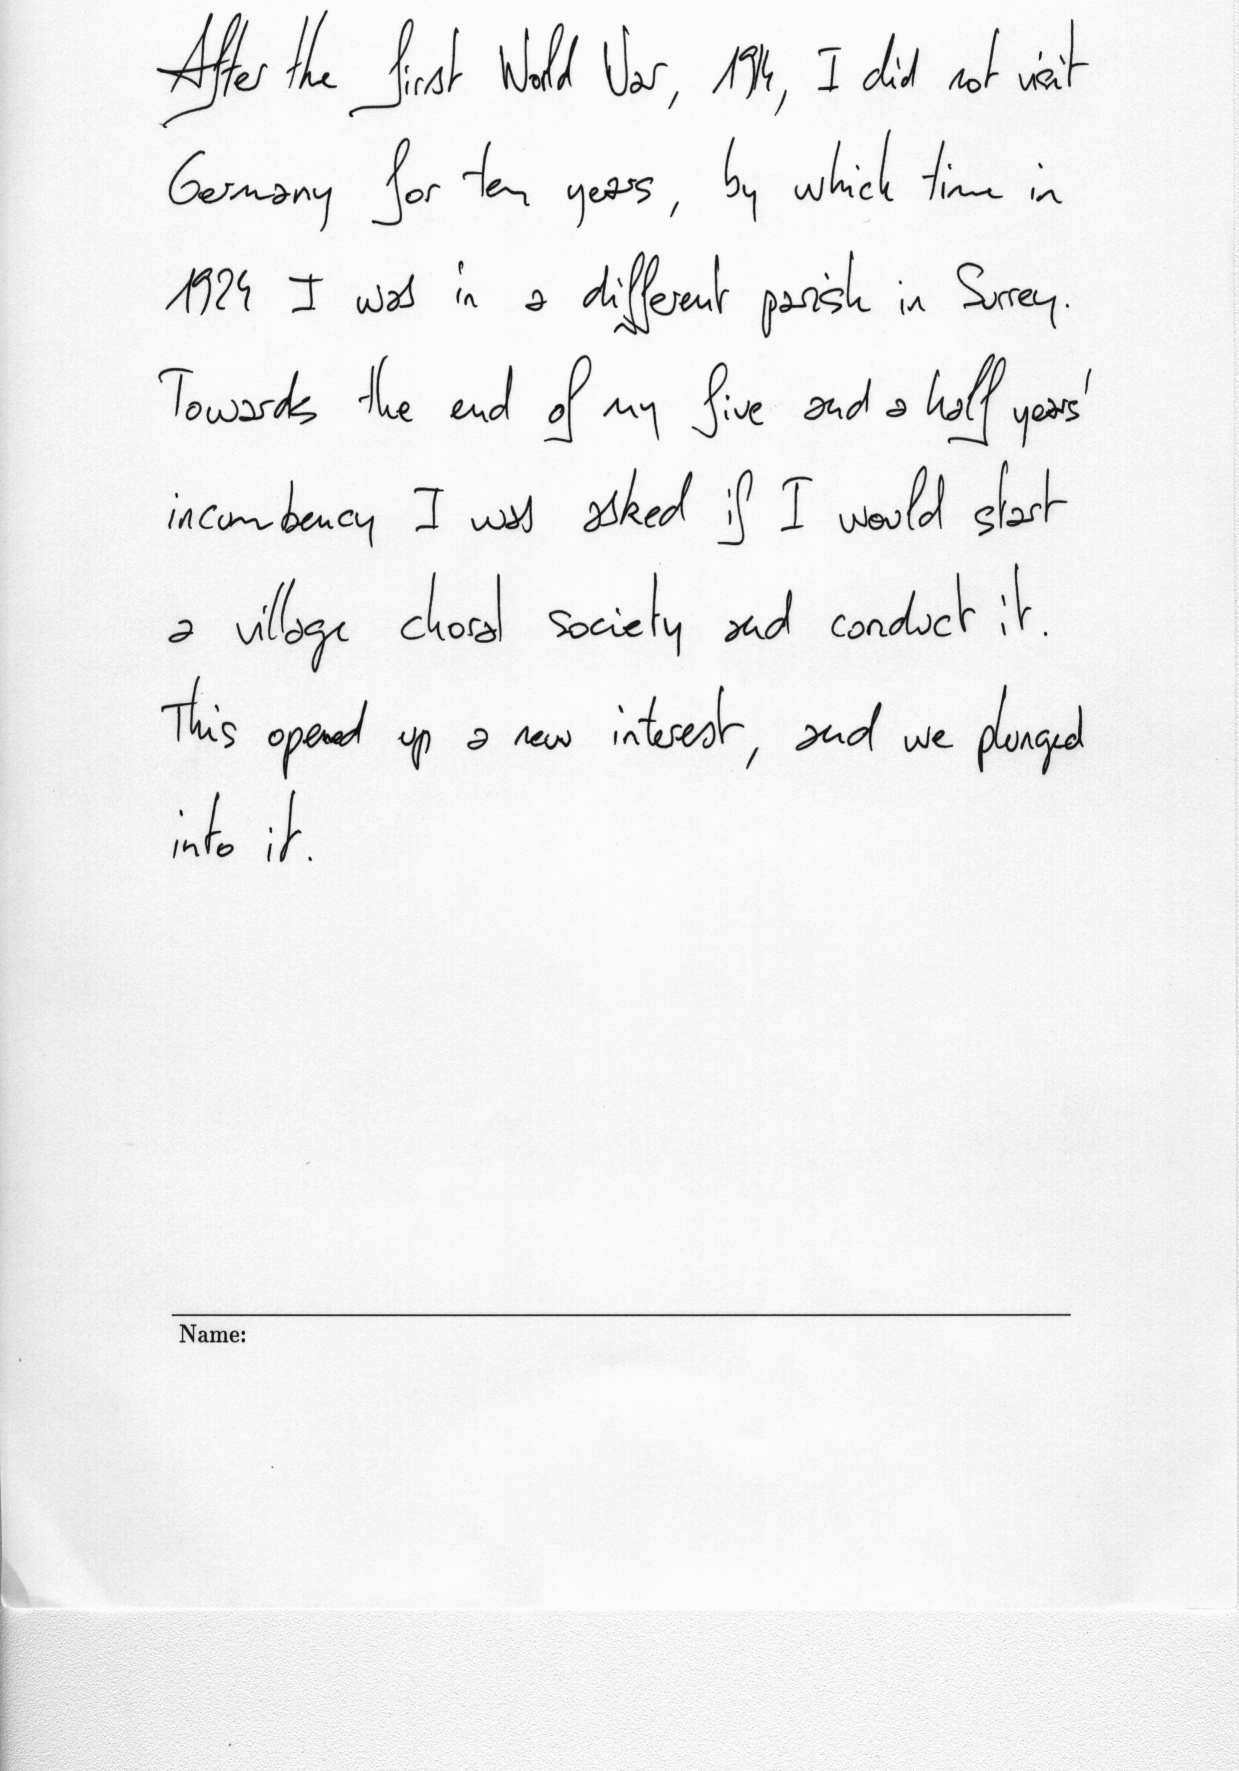 After the first World War, 1914, I did not visit
Germany for ten years, by which time in
1924 I was in a different parish in Surrey.
Towards the end of my five and a half years'
incumbency I was asked if I would start
a village choral society and conduct it.
This opened up a new interest, and we plunged
into it.
Name: